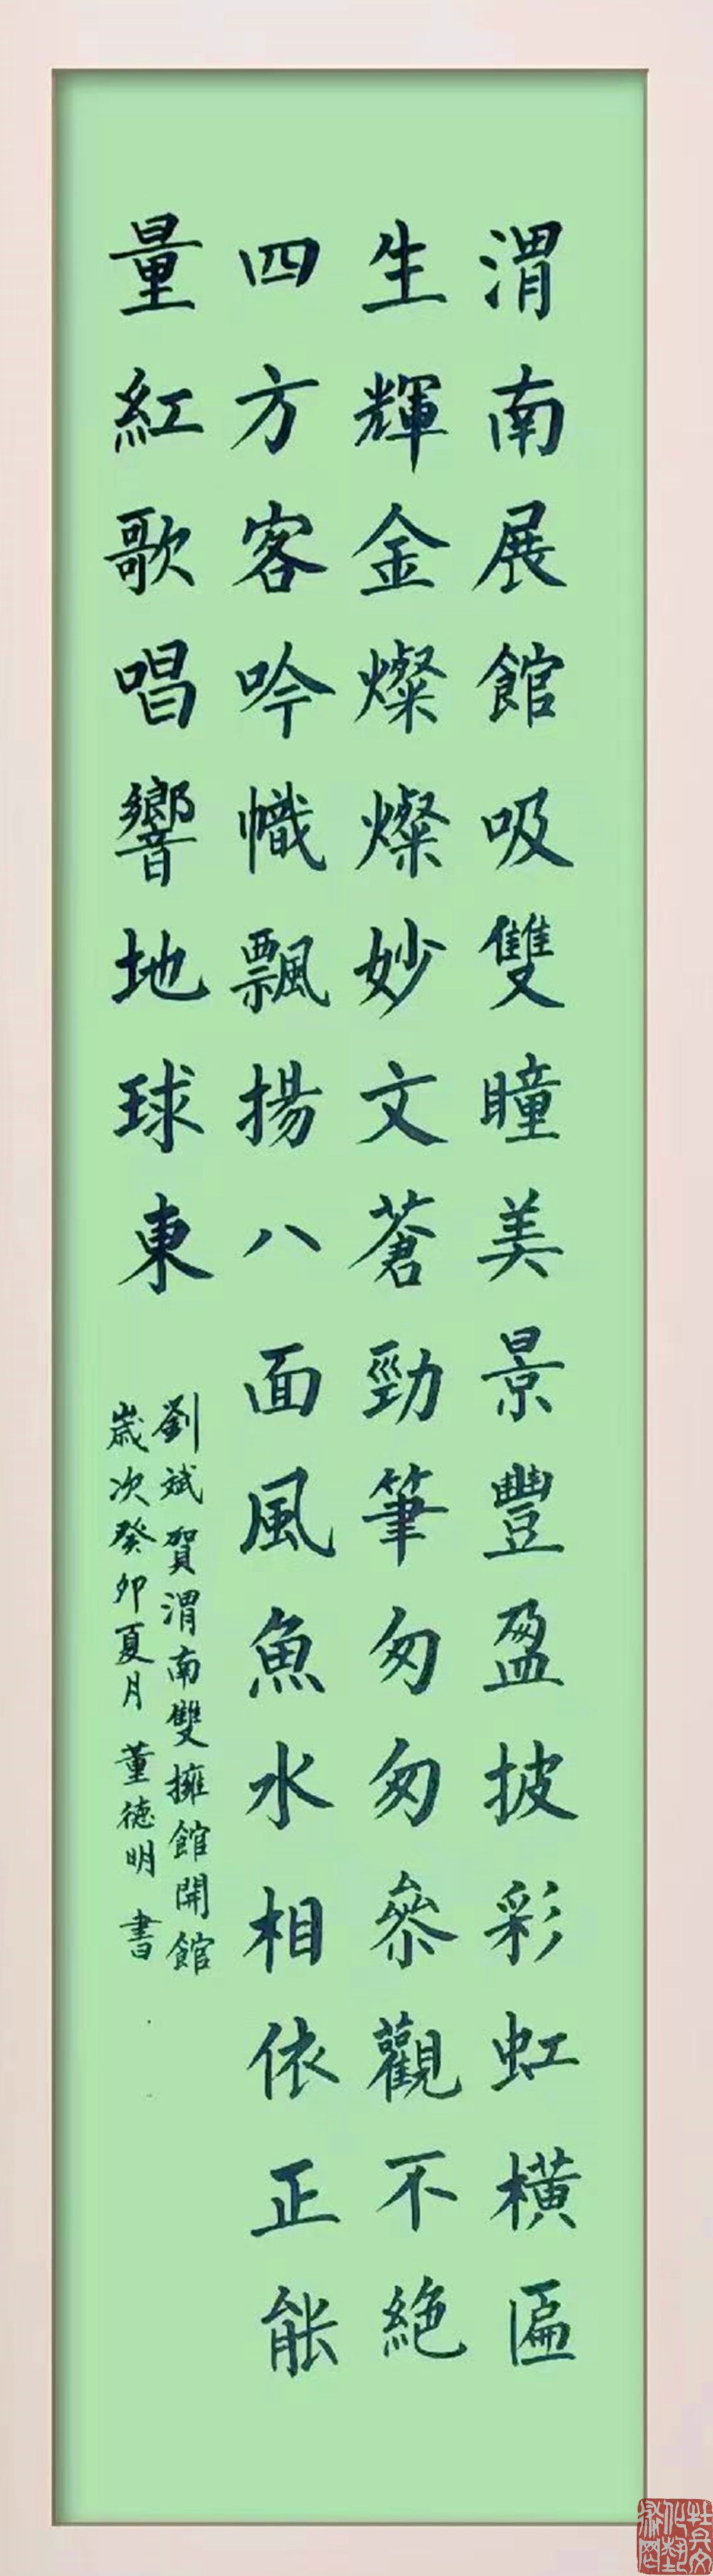 渭南展館吸雙瞳美景豐盈披彩虹橫匾
生輝金燦燦妙文蒼勁筆匆匆參觀不絕
四方客吟幟飄揚八面風魚水相依正能
量紅歌唱響地球東
劉斌賀渭南雙擁館開館
歲次癸卯夏月董德明書